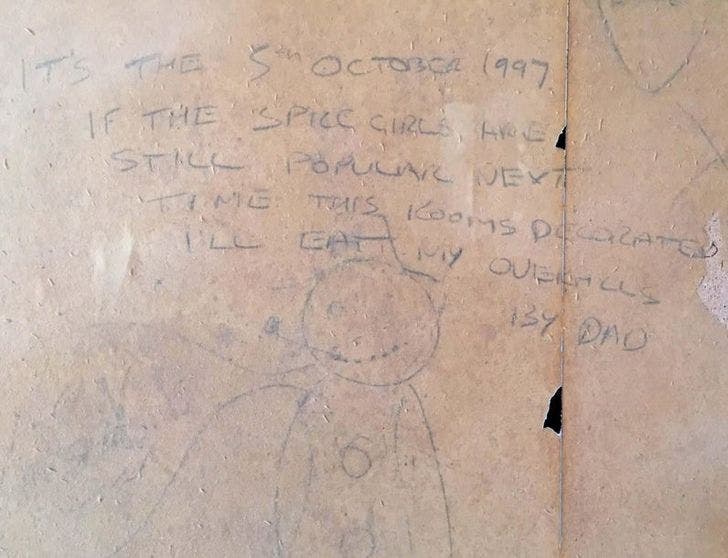 IT'S THE 5TH OCTOBER 1997
IF THE SPICE GIRLS ARE
STILL POPULAR NEXT
TIME THIS ROOMS DECORATED
I'LL EAT MY OVERALLS
BY DAD